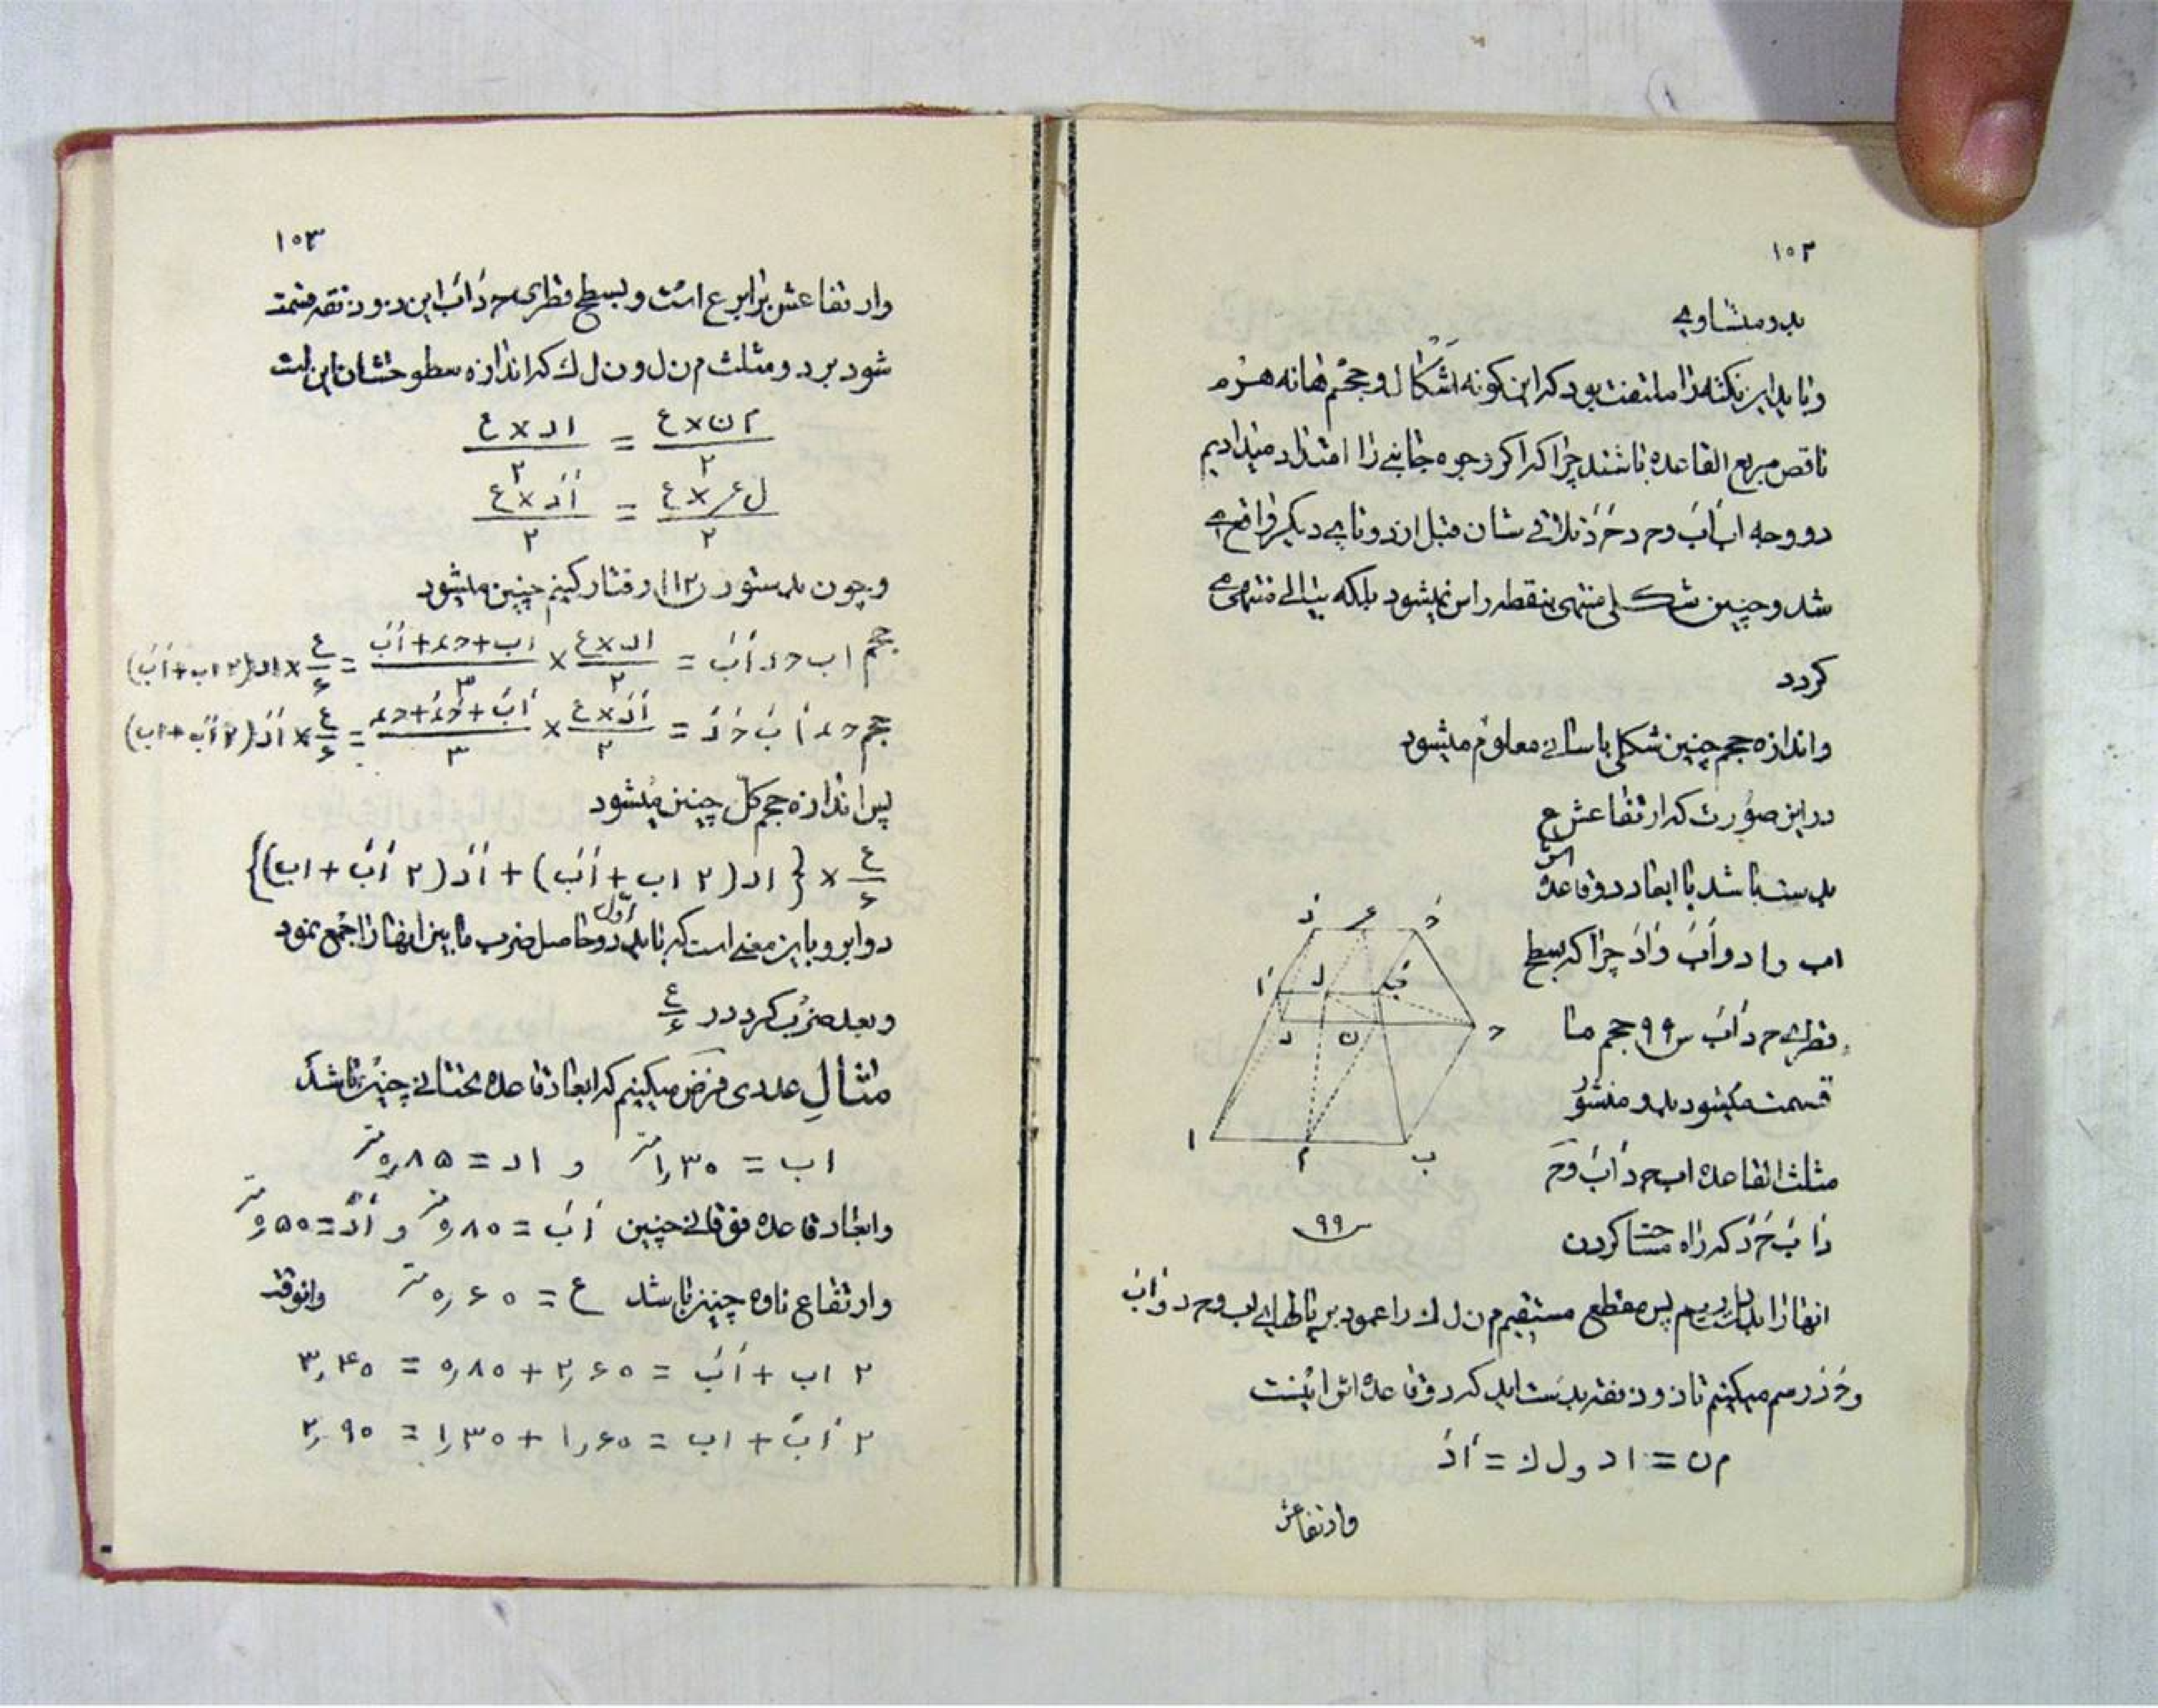 ۱۰۲
بدو متساوی
و باید این نکته را ملتفت بود که این گونه اشکال و حجم‌ها نه هرم
ناقص مربع القاعده باشند چرا که اگر وجوه جانبی را امتداد میدادیم
دو وجه اب اَبَ و ح د حَ دَ تلاقی شان قبل از دو تای دیگر واقع می
شد و چنین شکلی منتهی بنقطه راس نمیشود بلکه بیالی منتهی می
گردد
و اندازه حجم چنین شکلی باسانی معلوم میشود
در این صورت که ارتفاعش ع
بدست باشد با ابعاد دو قاعده اش
اب و اد و اَبَ و اَدَ چرا که بسطح
قطری ح د اَبَ س ۹۹ حجم ما
قسمت میشود بدو منشور
مثلث القاعده اب ح د اَبَ و ح
د اَ بَ حَ دَ که راه مساحت کردن
انها را بلدیم پس مقطع مستقیم م ن ل ك را عمود بر یالهای اب و ح د و اَبَ
و حَ دَ رسم میکنیم تا ذوذنقه بدست اید که دو قاعده اش اینست
م ن = اد و ل ك = اَدَ
وارتفاعش
دَ ك حَ
اَ ل بَ
د ن ح
ا م ب
س ۹۹
۱۰۳
وارتفاعش برابر ع است و بسطح قطری ح د اَبَ این ذوذنقه قسمت
شود بر دو مثلث م ن ل و ن ل ك که اندازه سطوحشان این است
م ن × ع / ۲ = اد × ع / ۲
ل ك × ع / ۲ = اَدَ × ع / ۲
و چون بدستور ن ۱۱۲ رفتار کنیم چنین میشود
حجم اب ح د اَبَ = اد × ع / ۲ × اب + ح د + اَبَ / ۳ = ع / ۶ × اد (۲ اب + اَبَ)
حجم ح د اَ بَ حَ دَ = اَدَ × ع / ۲ × اَبَ + حَ دَ + ح د / ۳ = ع / ۶ × اَدَ (۲ اَبَ + اب)
پس اندازه حجم کل چنین میشود
ع / ۶ × {اد (۲ اب + اَبَ) + اَدَ (۲ اَبَ + اب)}
دوابرو باین معنی است که باید اوّل دو حاصل ضرب مابین انها را جمع نمود
و بعد ضرب کرد در ع / ۶
مثال عددی فرض میکنیم که ابعاد قاعده تحتانی چنین باشد
اب = ۱٫۳۰ متر و اد = ۰٫۸۵ متر
وابعاد قاعده فوقانی چنین اَبَ = ۰٫۸۰ متر و اَدَ = ۰٫۵۰ متر
وارتفاع ناوه چنین باشد ع = ۰٫۶۰ متر وانوقت
۲ اب + اَبَ = ۲٫۶۰ + ۰٫۸۰ = ۳٫۴۰
۲ اَبَ + اب = ۱٫۶۰ + ۱٫۳۰ = ۲٫۹۰